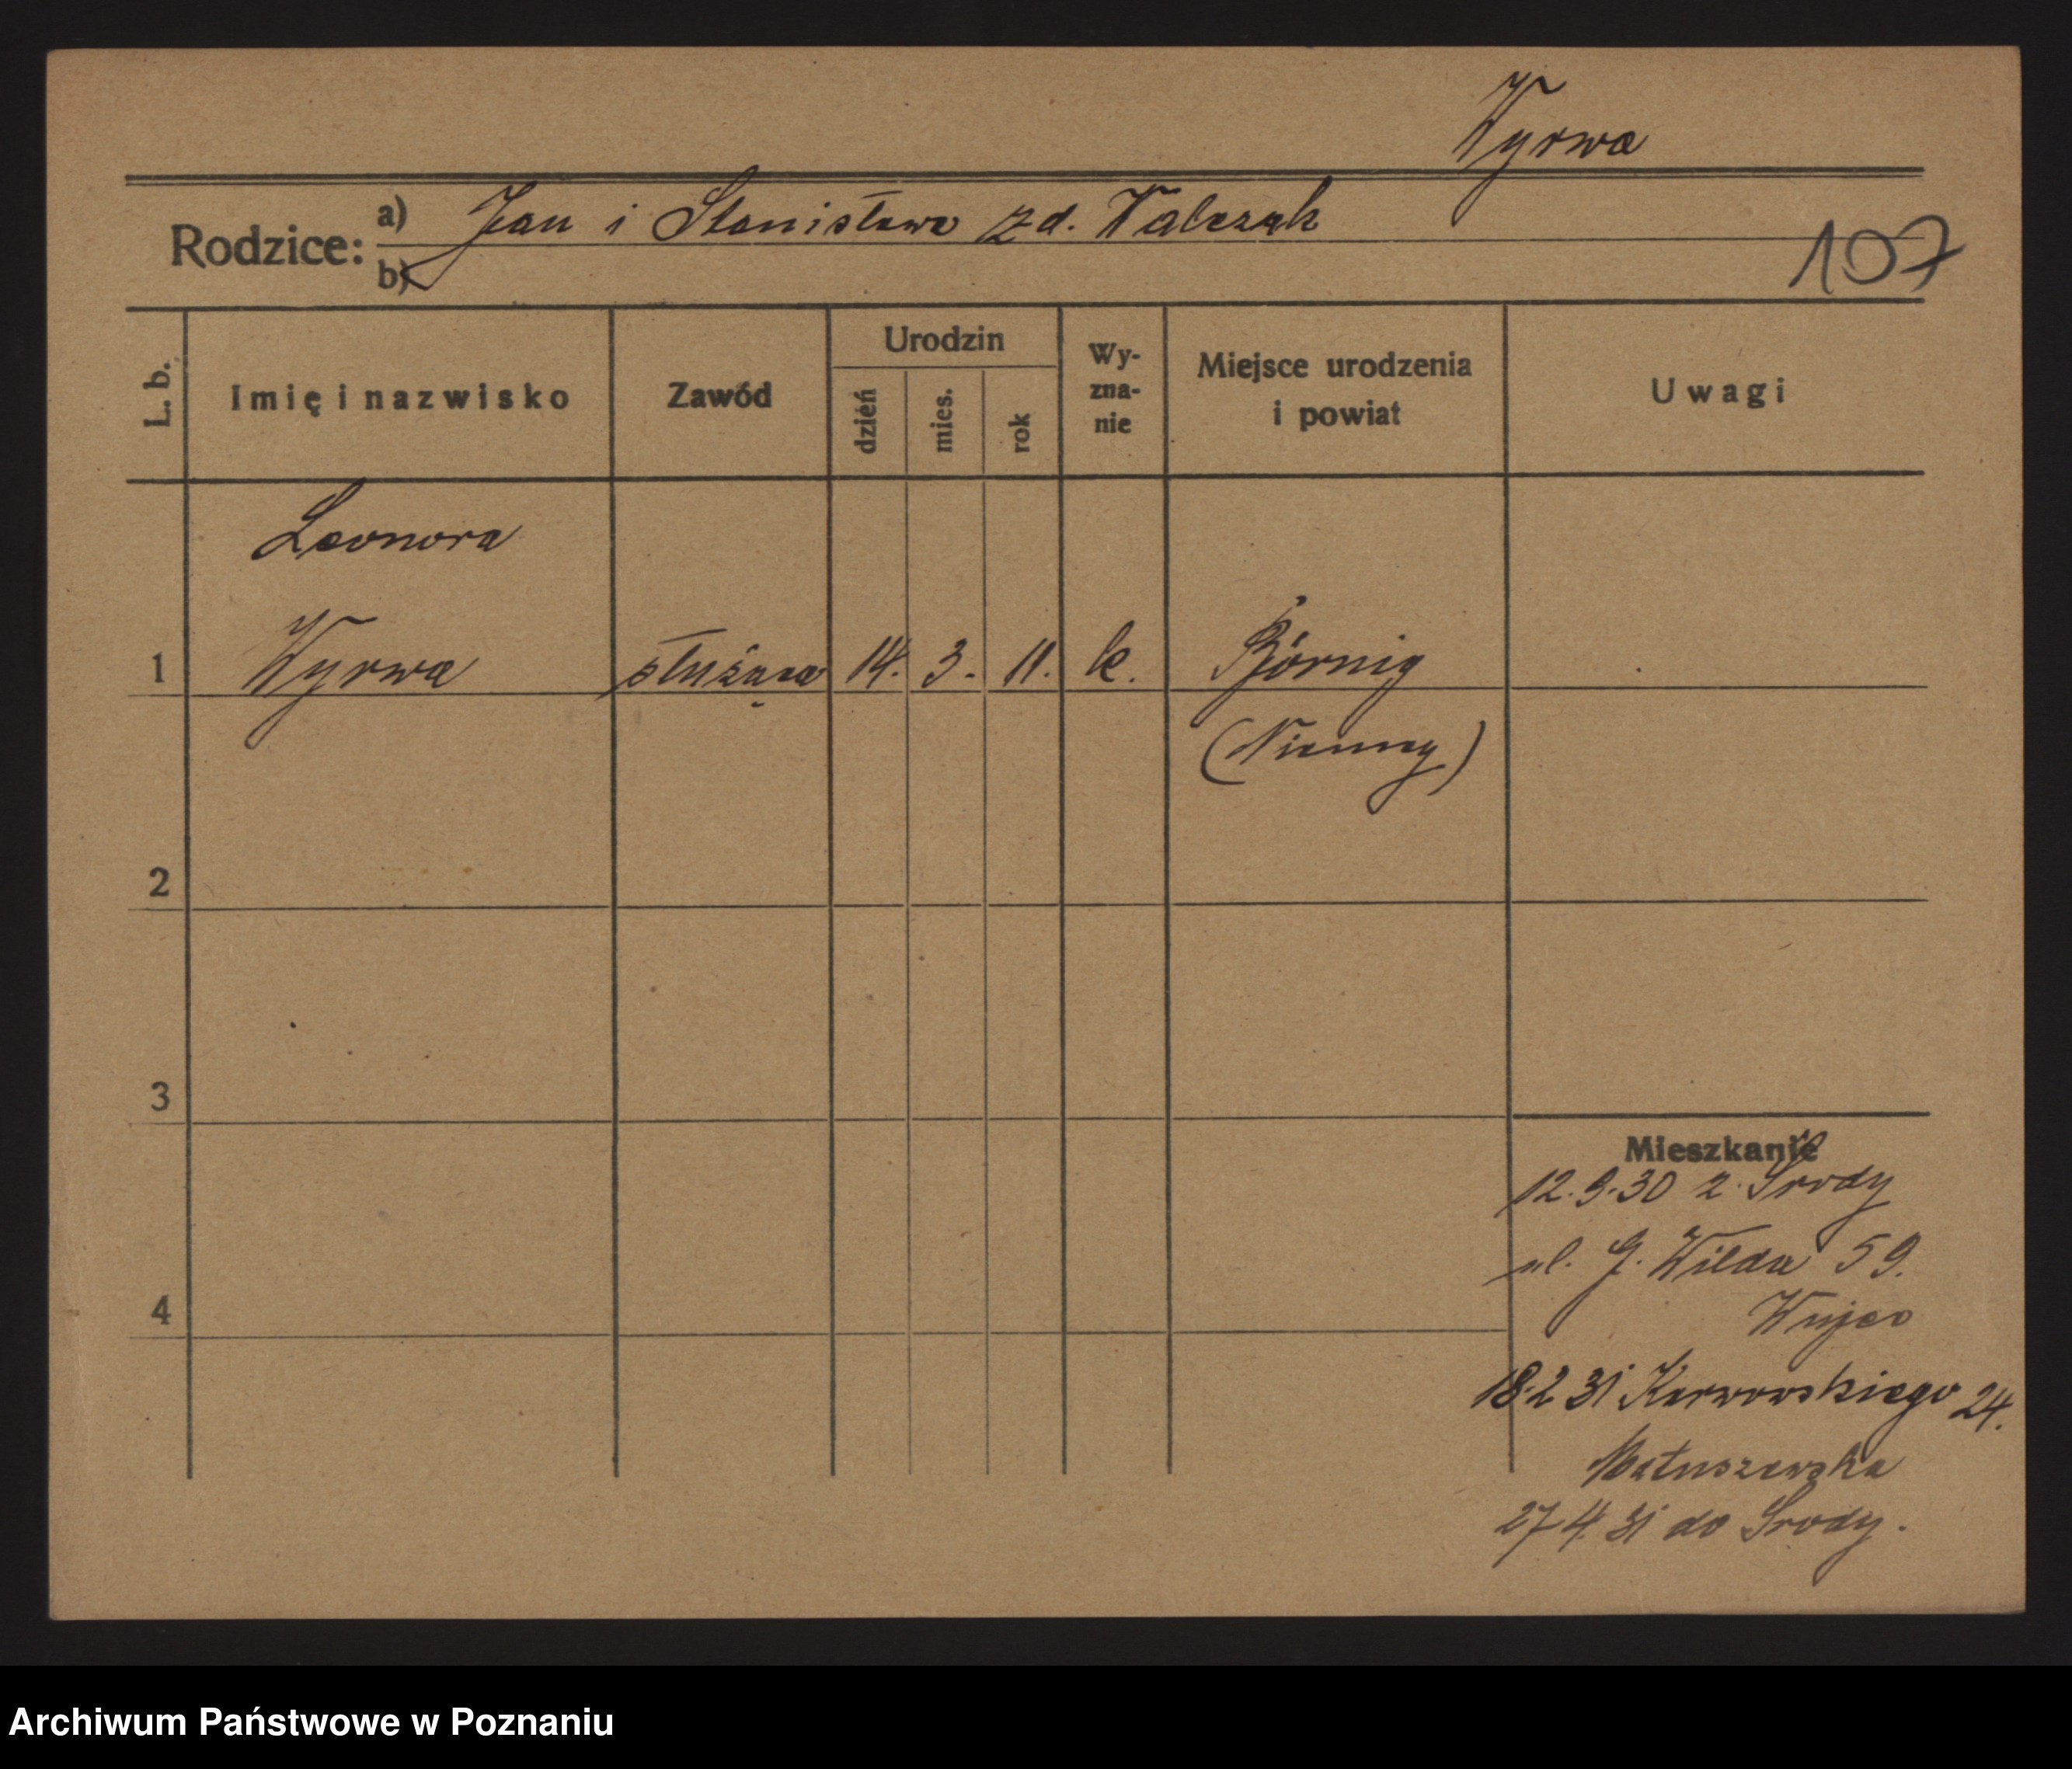 Wyrwa
Rodzice: a) Jan i Stanisława zd. Walczak
b)
107
L. b.
Imię i nazwisko
Zawód
Urodzin
dzień
mies.
rok
Wy-
zna-
nie
Miejsce urodzenia
i powiat
Uwagi
Leonora
1 Wyrwa służąca 14. 3. 11. k. Börnig
(Niemcy)
2
3
4
Mieszkanie
12.9.30 z Środy
ul. G. Wilda 59.
18.2 31 Karwowskiego 24.
Matuszewska
27 4. 31 do Środy.
Archiwum Państwowe w Poznaniu